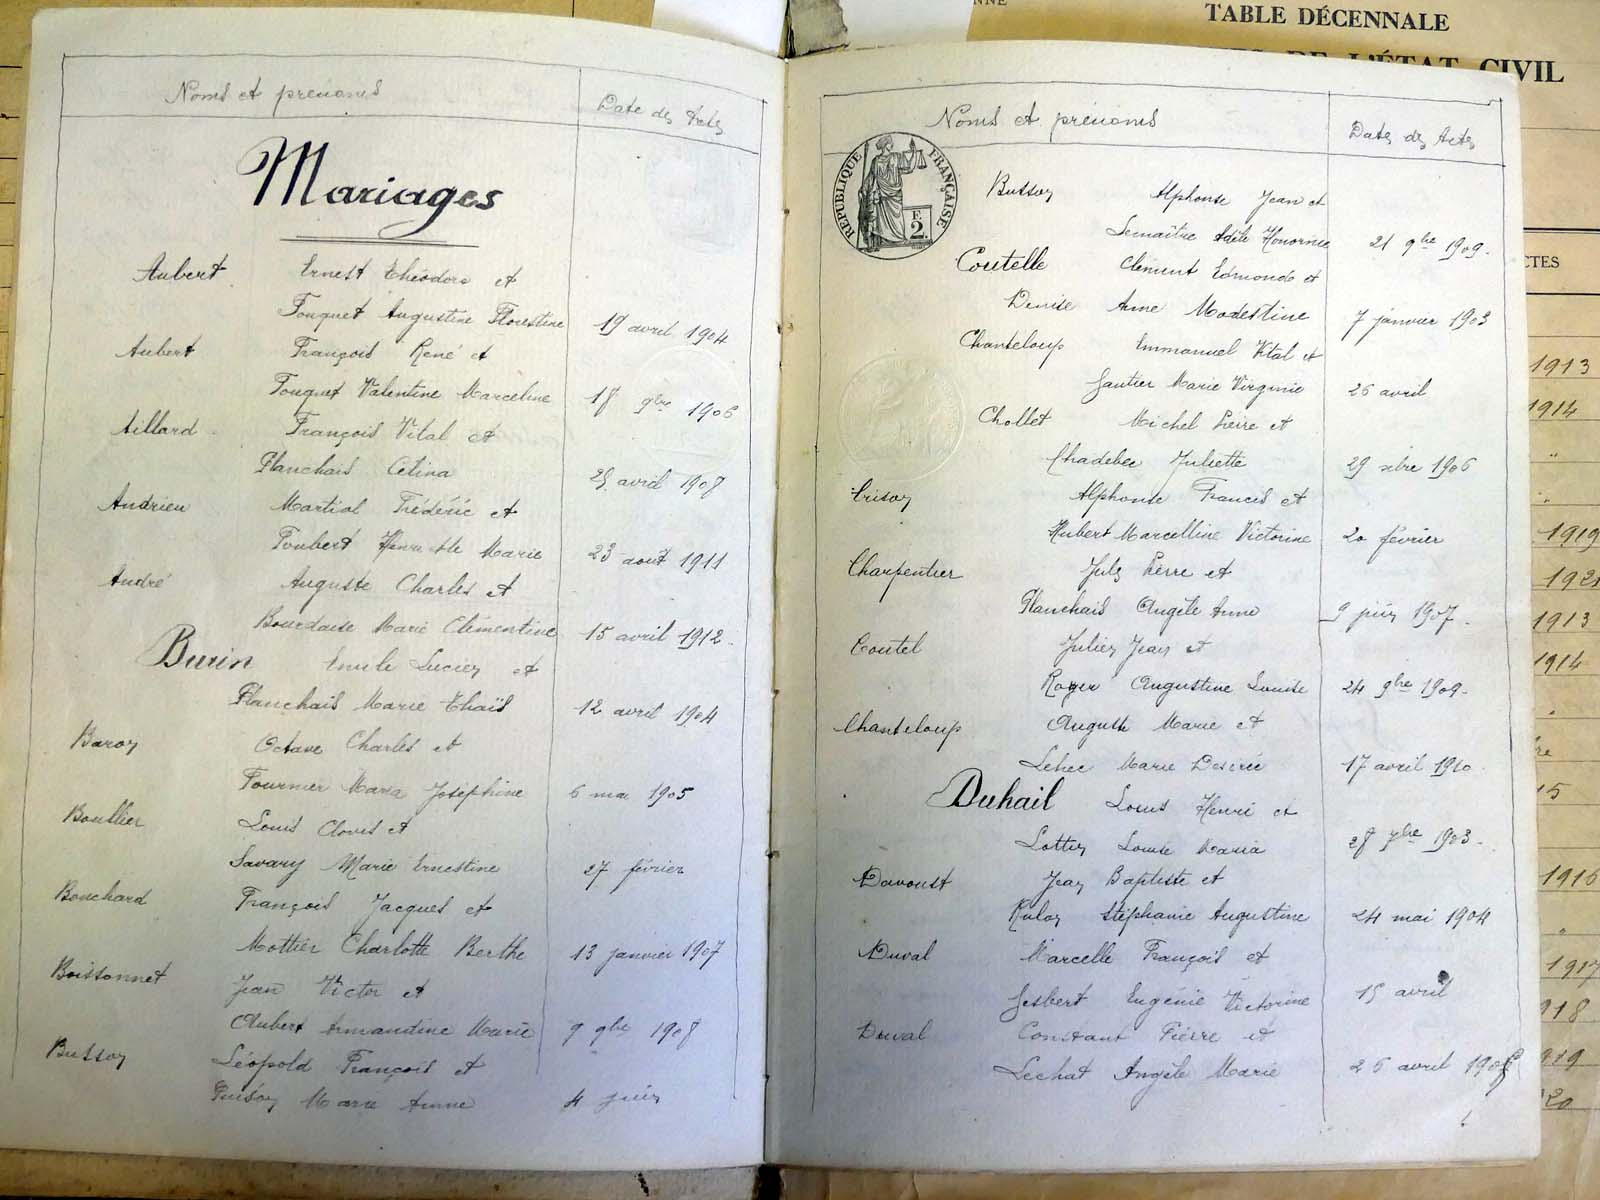 Noms et prénoms Date des Actes
Mariages
Aubert Ernest Théodore et
Fouquet Augustine Florestine 19 avril 1904
Aubert François René et
Fouquet Valentine Marceline 18 9bre 1906
Aillard François Vital et
Planchais Célina 25 avril 1908
Andrieu Martial Frédéric et
Foubert Henriette Marie 23 août 1911
André Auguste Charles et
Bourdaise Marie Clémentine 15 avril 1912
Burin Emile Lucien et
Planchais Marie Thaïs 12 avril 1904
Baron Octave Charles et
Fournier Maria Joséphine 6 mai 1905
Boullier Louis Clovis et
Savary Marie Ernestine 27 février
Bouchard François Jacques et
Mottier Charlotte Berthe 13 janvier 1907
Boissonnet Jean Victor et
Aubert Armandine Marie 9 9bre 1908
Busson Léopold François et
Marie Anne 4 juin
TABLE DÉCENNALE
DE L'ÉTAT CIVIL
Noms et prénoms Dates des Actes
RÉPUBLIQUE FRANÇAISE
F.
2.
Busson Alphonse Jean et
Lemaître Adèle Honorine 21 9bre 1909.
Coutelle Clément Edmond et
Denise Anne Modestine 7 janvier 1903
Chanteloup Emmanuel Vital et
Gautier Marie Virginie 26 avril
Chollet Michel Pierre et
Chadebec Juliette 29 xbre 1906
Crison Alphonse Francis et
Hubert Marcelline Victorine 20 février
Charpentier Jules Pierre et
Planchais Angèle Anne 9 juin 1907.
Coutel Julien Jean et
Roger Augustine Louise 24 9bre 1909.
Chanteloup Auguste Marie et
Lehec Marie Désirée 17 avril 1910.
Duhail Louis Henri et
Lottin Louise Maria 28 7bre 1903.
Davoust Jean Baptiste et
Rulon Stéphanie Augustine 24 mai 1904
Duval Marcelle François et
Jesbert Eugénie Victorine 15 avril
Duval Constant Pierre et
Lechat Angèle Marie 26 avril
CTES
1913
1914
"
1919
1913
1914
15
1916
"
1917
918
20